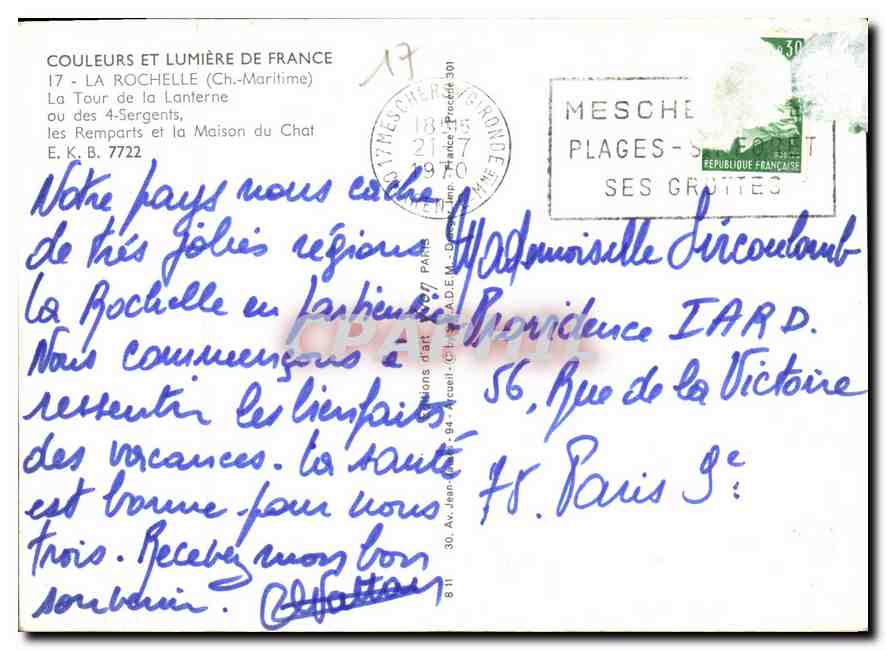 COULEURS ET LUMIÈRE DE FRANCE
17 - LA ROCHELLE (Ch.-Maritime)
La Tour de la Lanterne
ou des 4-Sergents,
les Remparts et la Maison du Chat
E. K. B. 7722
17
17 MESCHERS S/GIRONDE
18H
21-7
1970
CH MME
MESCHE
PLAGES - SA FORET
SES GROTTES
0,30
REPUBLIQUE FRANÇAISE
Notre pays nous cache
de très jolies régions
La Rochelle en particulier
Nous commençons à
ressentir les bienfaits
des vacances. La santé
est bonne pour nous
trois. Recevez mon bon
souvenir.
Editions d'art Yvon PARIS
30. Av. Jean - 94 - Arcueil - A.D.E.M. - Imp. France - Procédé 301
B 11
Mademoiselle Sircoulomb
Providence IARD.
56, Rue de la Victoire
75. Paris 9e
CPARAMA